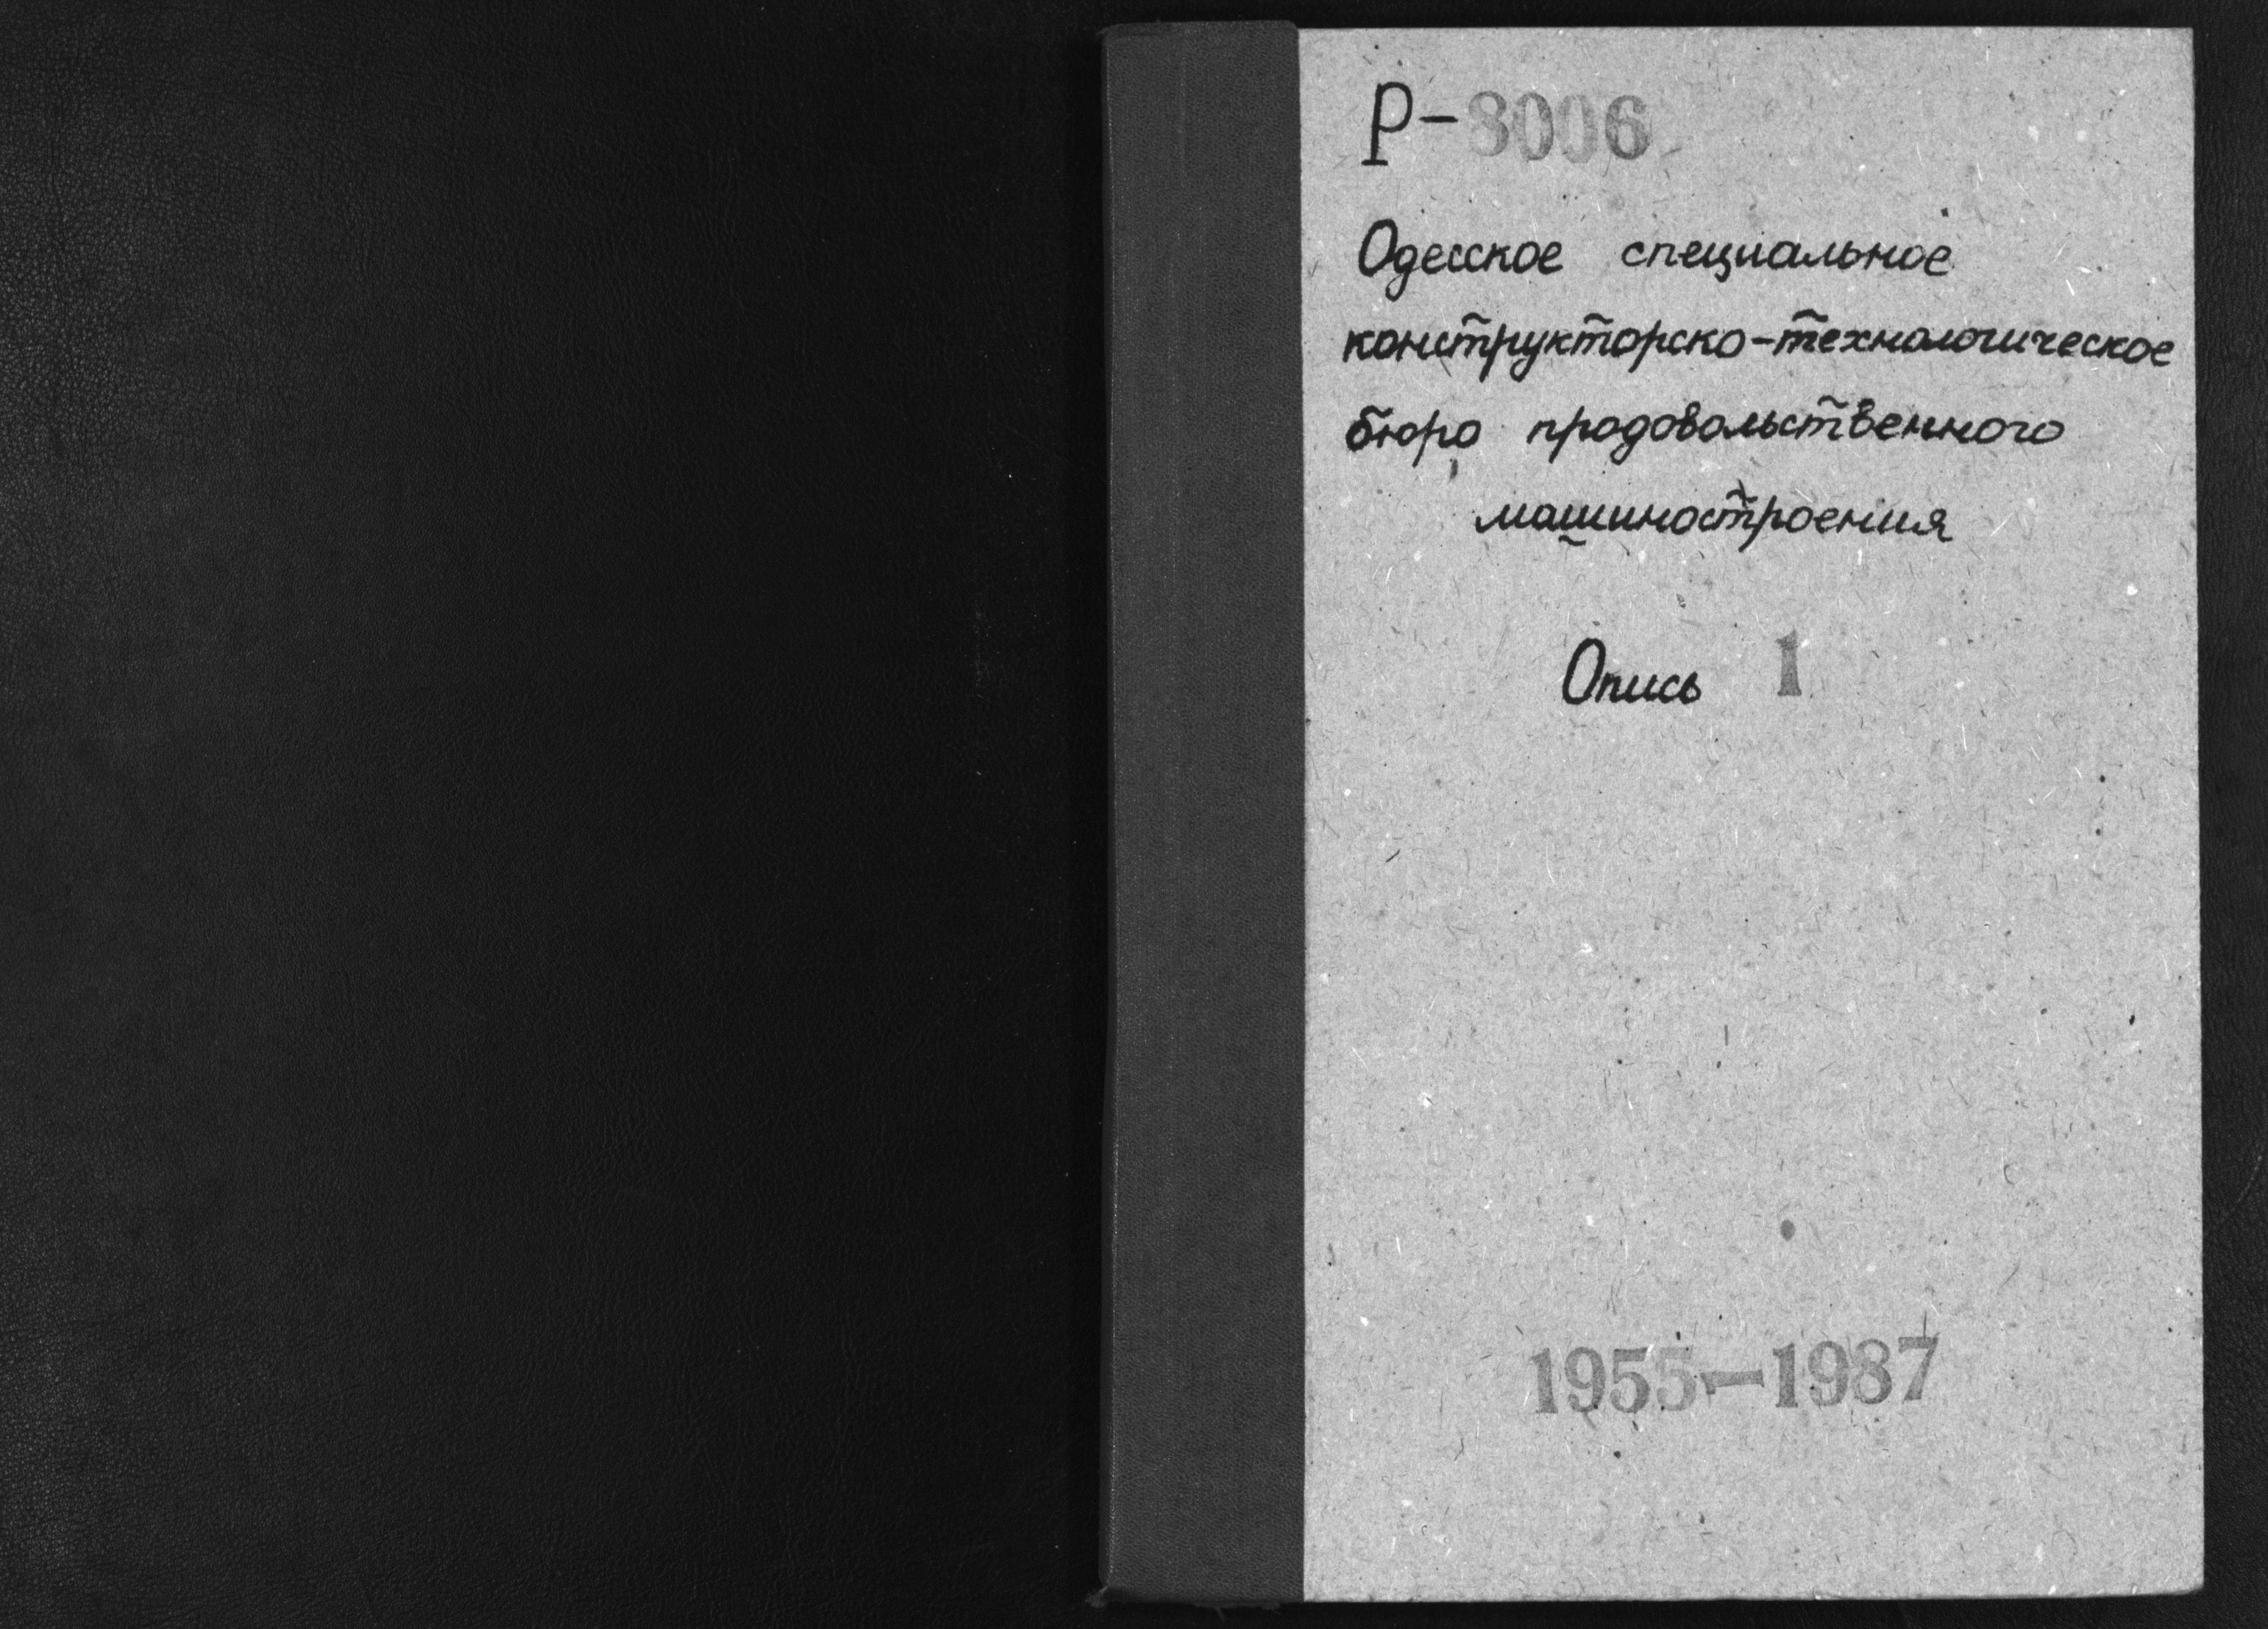 Р-8006
Одесское специальное
конструкторско-технологическое
бюро продовольственного
машиностроения
Опись 1
1955-1987